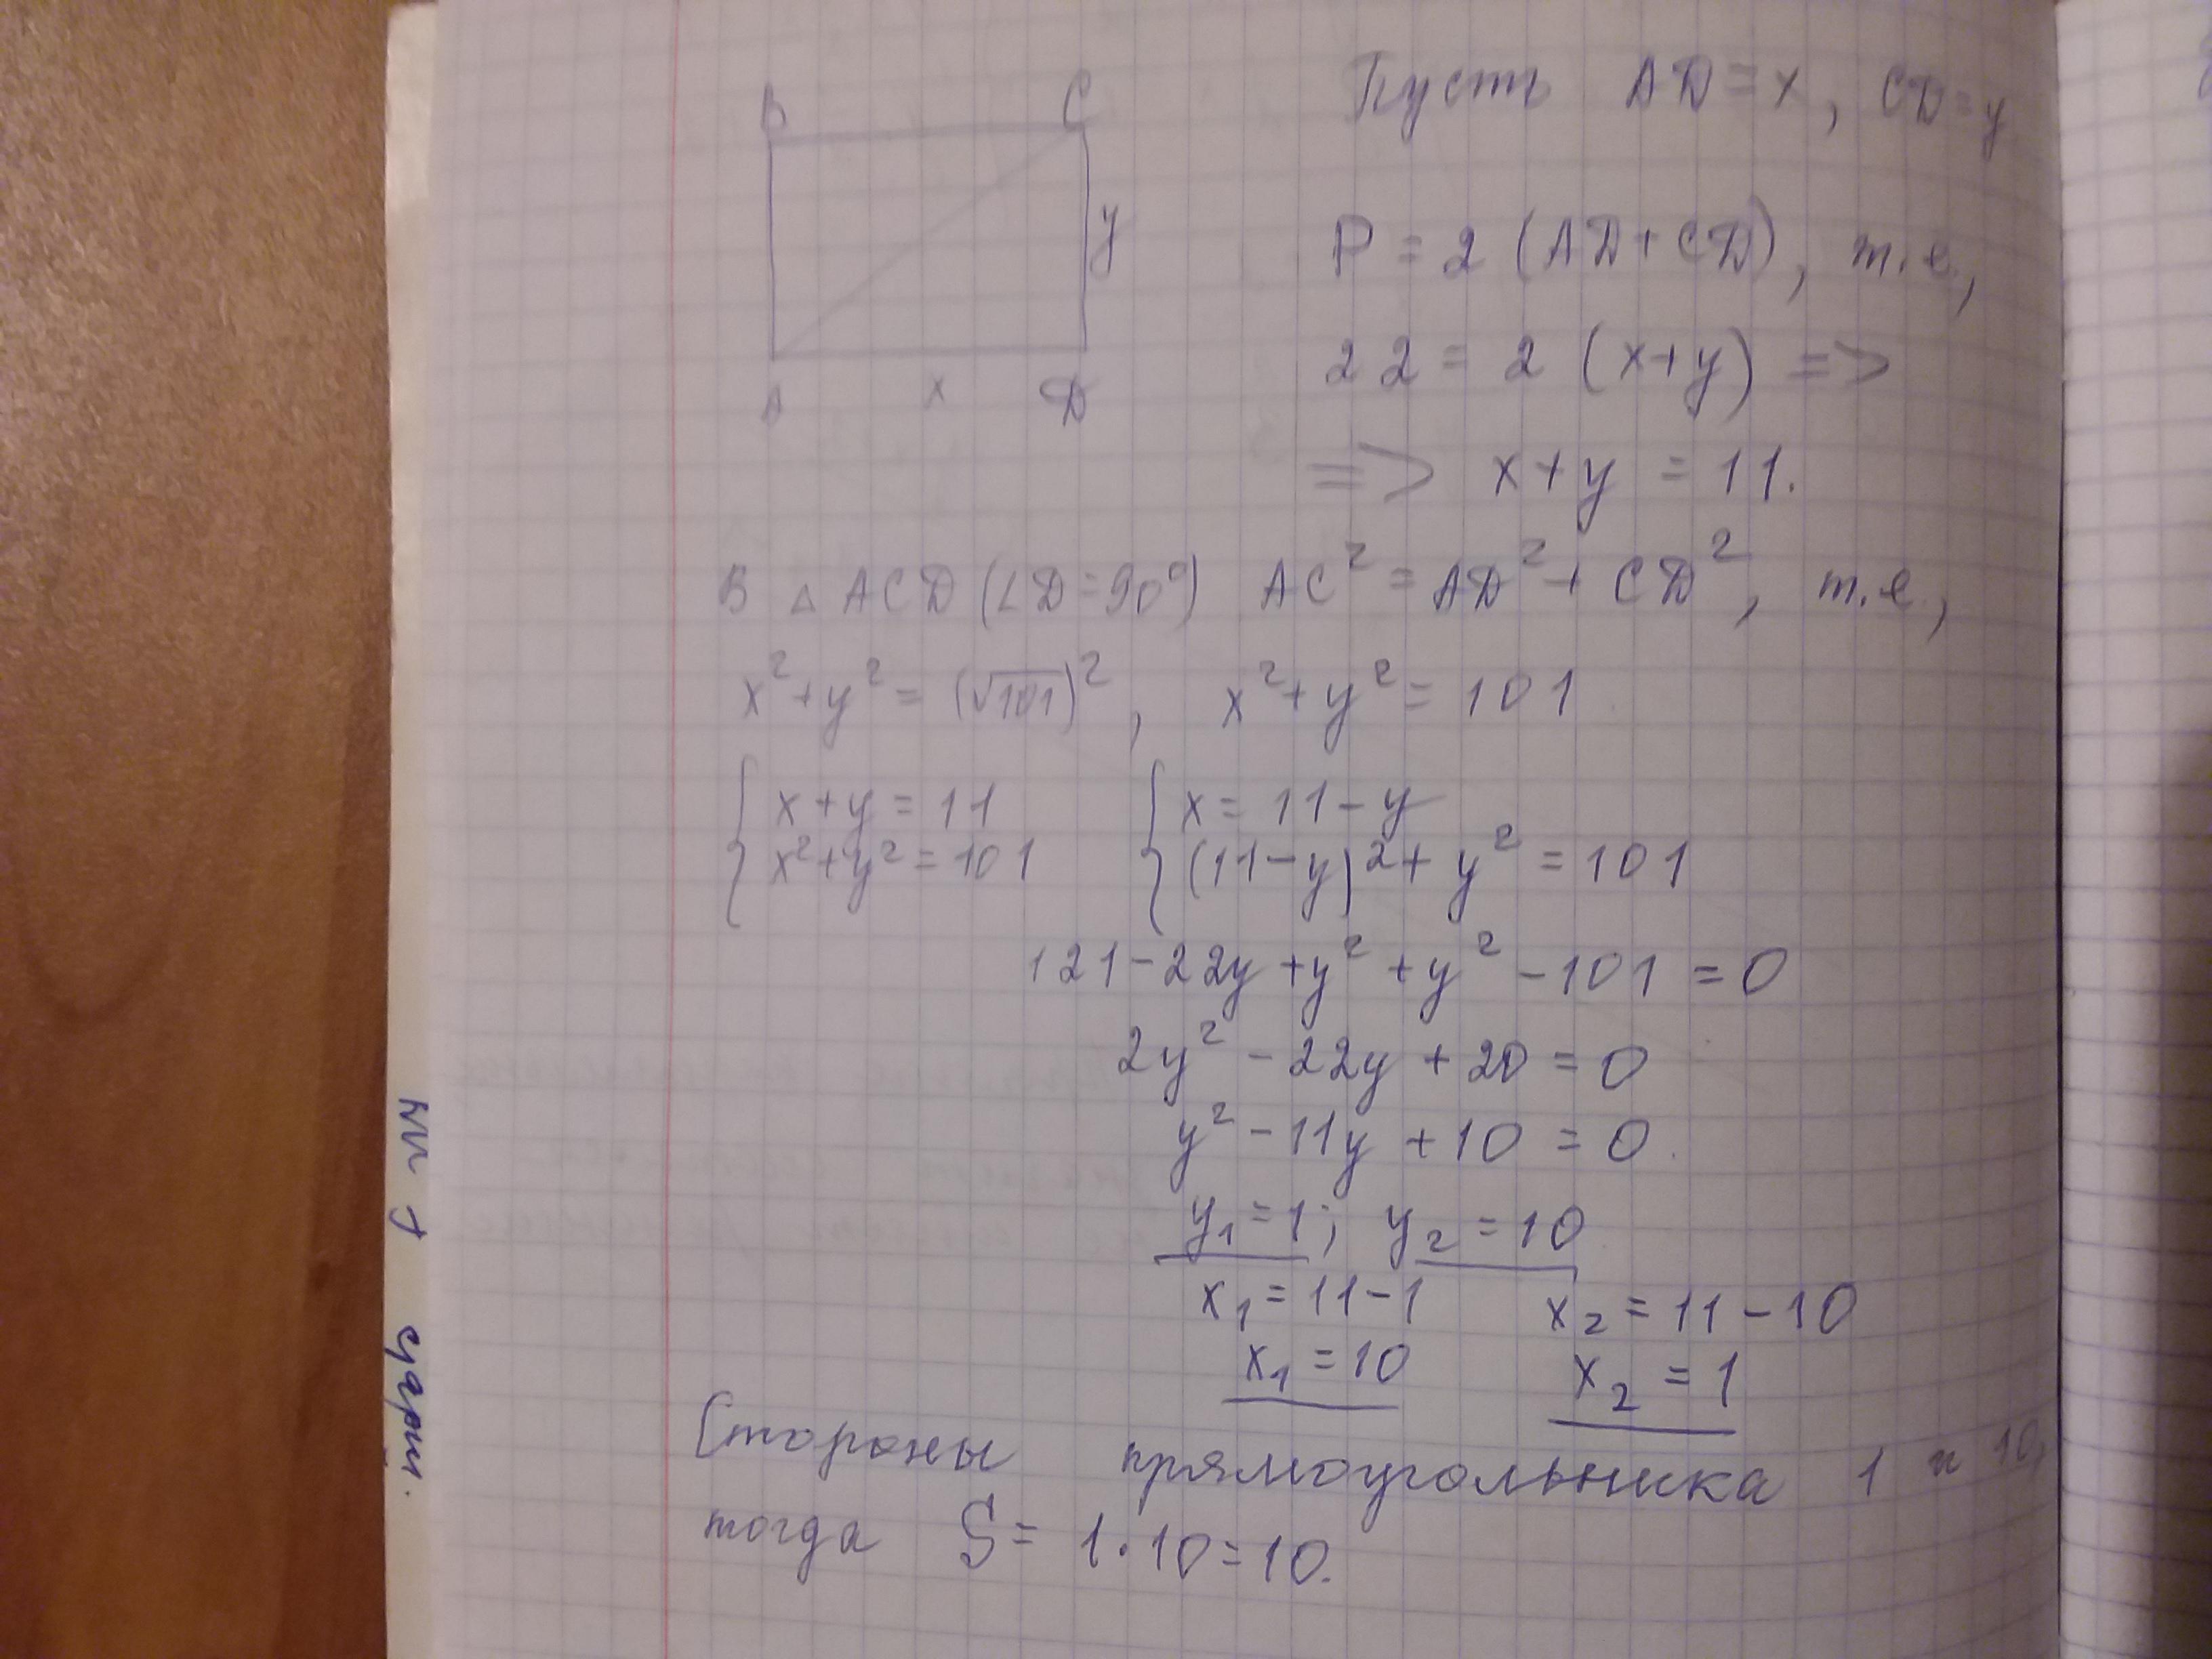 B C
Пусть AD = x, CD = y
y
P = 2 (AD + CD), т.е,
22 = 2 (x+y) =>
A x D
=> x+y = 11.
В △ ACD (∠D = 90°) AC² = AD² + CD², т.е,
x² + y² = (√101)², x² + y² = 101
{ x + y = 11 { x = 11 - y
x² + y² = 101 (11 - y)² + y² = 101
121 - 22y + y² + y² - 101 = 0
2y² - 22y + 20 = 0
y² - 11y + 10 = 0.
y₁ = 1; y₂ = 10
x₁ = 11 - 1 x₂ = 11 - 10
x₁ = 10 x₂ = 1
Стороны прямоугольника 1 и 10,
тогда S = 1 · 10 = 10.